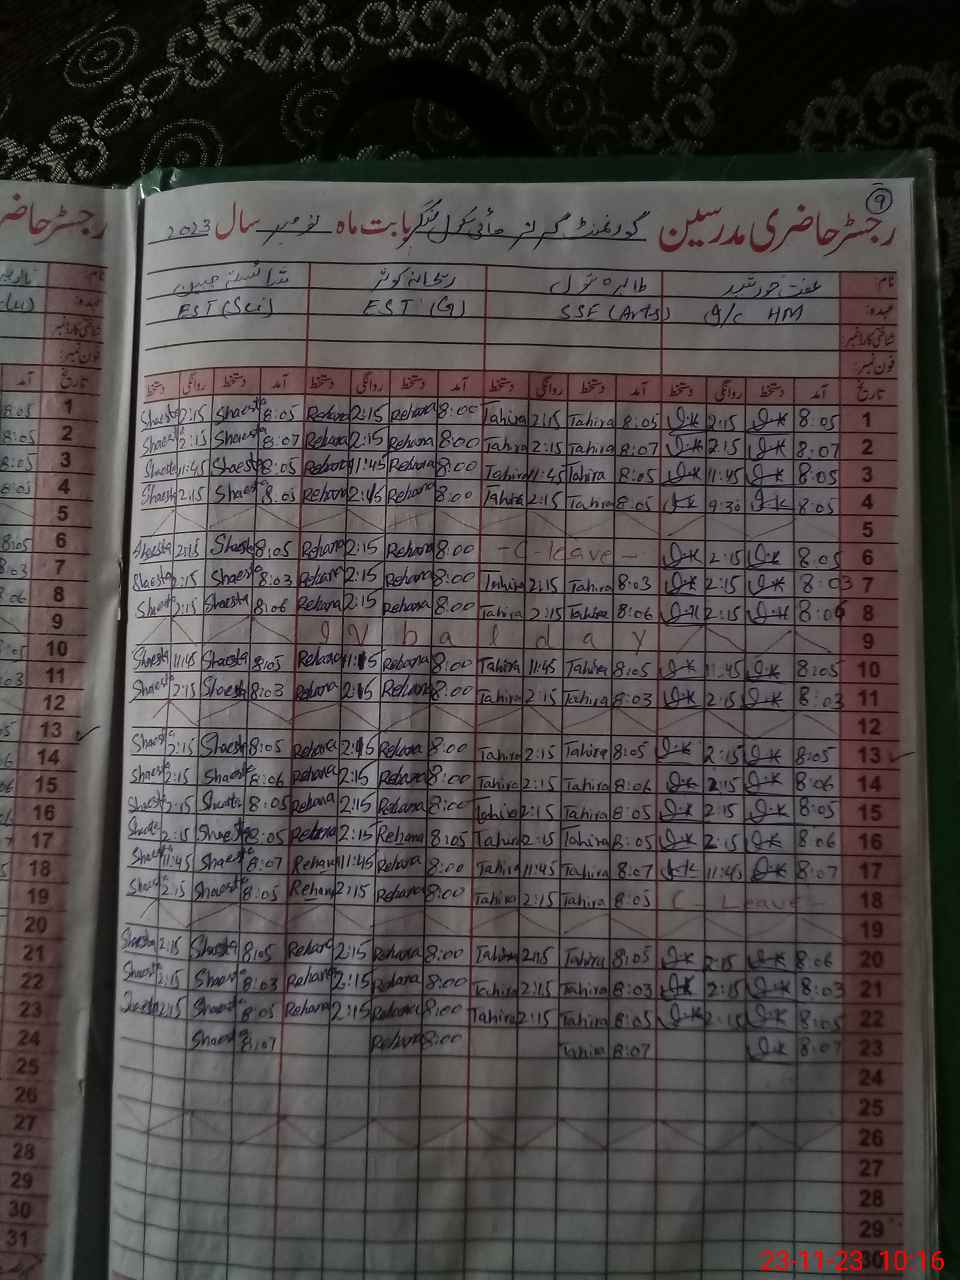 9
رجسٹر حاضری مدرسین گورنمنٹ گرلز ہائی سکول بابت ماہ نومبر سال 2023
نام: عفت خورشید طاہرہ بتول ریحانہ کوثر شائستہ جبین
عہدہ: I/c HM SSE (Arts) EST (G) EST (Sci)
شناختی کارڈ نمبر:
فون نمبر:
تاریخ آمد دستخط روانگی دستخط آمد دستخط روانگی دستخط آمد دستخط روانگی دستخط آمد دستخط روانگی دستخط
1 8:05 2:15 8:05 Tahira 2:15 Tahira 8:00 Rehana 2:15 Rehana 8:05 Shaesta 2:15 Shaesta
2 8:07 2:15 8:07 Tahira 2:15 Tahira 8:00 Rehana 2:15 Rehana 8:07 Shaesta 2:15 Shaesta
3 8:05 11:45 8:05 Tahira 11:45 Tahira 8:00 Rehana 11:45 Rehana 8:05 Shaesta 11:45 Shaesta
4 8:05 9:30 8:05 Tahira 2:15 Tahira 8:00 Rehana 2:15 Rehana 8:05 Shaesta 2:15 Shaesta
5
6 8:05 2:15 - C - leave - 8:00 Rehana 2:15 Rehana 8:05 Shaesta 2:15 Shaesta
7 8:03 2:15 8:03 Tahira 2:15 Tahira 8:00 Rehana 2:15 Rehana 8:03 Shaesta 2:15 Shaesta
8 8:06 2:15 8:06 Tahira 2:15 Tahira 8:00 Rehana 2:15 Rehana 8:06 Shaesta 2:15 Shaesta
9 Iqbal day
10 8:05 11:45 8:05 Tahira 11:45 Tahira 8:00 Rehana 11:45 Rehana 8:05 Shaesta 11:45 Shaesta
11 8:03 2:15 8:03 Tahira 2:15 Tahira 8:00 Rehana 2:15 Rehana 8:03 Shaesta 2:15 Shaesta
12
13 8:05 2:15 8:05 Tahira 2:15 Tahira 8:00 Rehana 2:15 Rehana 8:05 Shaesta 2:15 Shaesta
14 8:06 2:15 8:06 Tahira 2:15 Tahira 8:00 Rehana 2:15 Rehana 8:06 Shaesta 2:15 Shaesta
15 8:05 2:15 8:05 Tahira 2:15 Tahira 8:00 Rehana 2:15 Rehana 8:05 Shaesta 2:15 Shaesta
16 8:06 2:15 8:05 Tahira 2:15 Tahira 8:05 Rehana 2:15 Rehana 8:05 Shaesta 2:15 Shaesta
17 8:07 11:45 8:07 Tahira 11:45 Tahira 8:00 Rehana 11:45 Rehana 8:07 Shaesta 11:45 Shaesta
18 C - Leave - 8:05 Tahira 2:15 Tahira 8:00 Rehana 2:15 Rehana 8:05 Shaesta 2:15 Shaesta
19
20 8:06 2:15 8:05 Tahira 2:15 Tahira 8:00 Rehana 2:15 Rehana 8:05 Shaesta 2:15 Shaesta
21 8:03 2:15 8:03 Tahira 2:15 Tahira 8:00 Rehana 2:15 Rehana 8:03 Shaesta 2:15 Shaesta
22 8:05 2:15 8:05 Tahira 2:15 Tahira 8:00 Rehana 2:15 Rehana 8:05 Shaesta 2:15 Shaesta
23 8:07 8:07 Tahira 8:00 Rehana 8:07 Shaesta
24
25
26
27
28
29
30
رجسٹر حاضر
نام:
عہدہ:
شناختی کارڈ نمبر:
فون نمبر:
تاریخ آمد
1 8:05
2 8:05
3 8:05
4 8:05
5
6 8:05
7 8:03
8
9
10
11
12
13
14
15
16
17
18
19
20
21
22
23
24
25
26
27
28
29
30
31
23-11-23 10:16